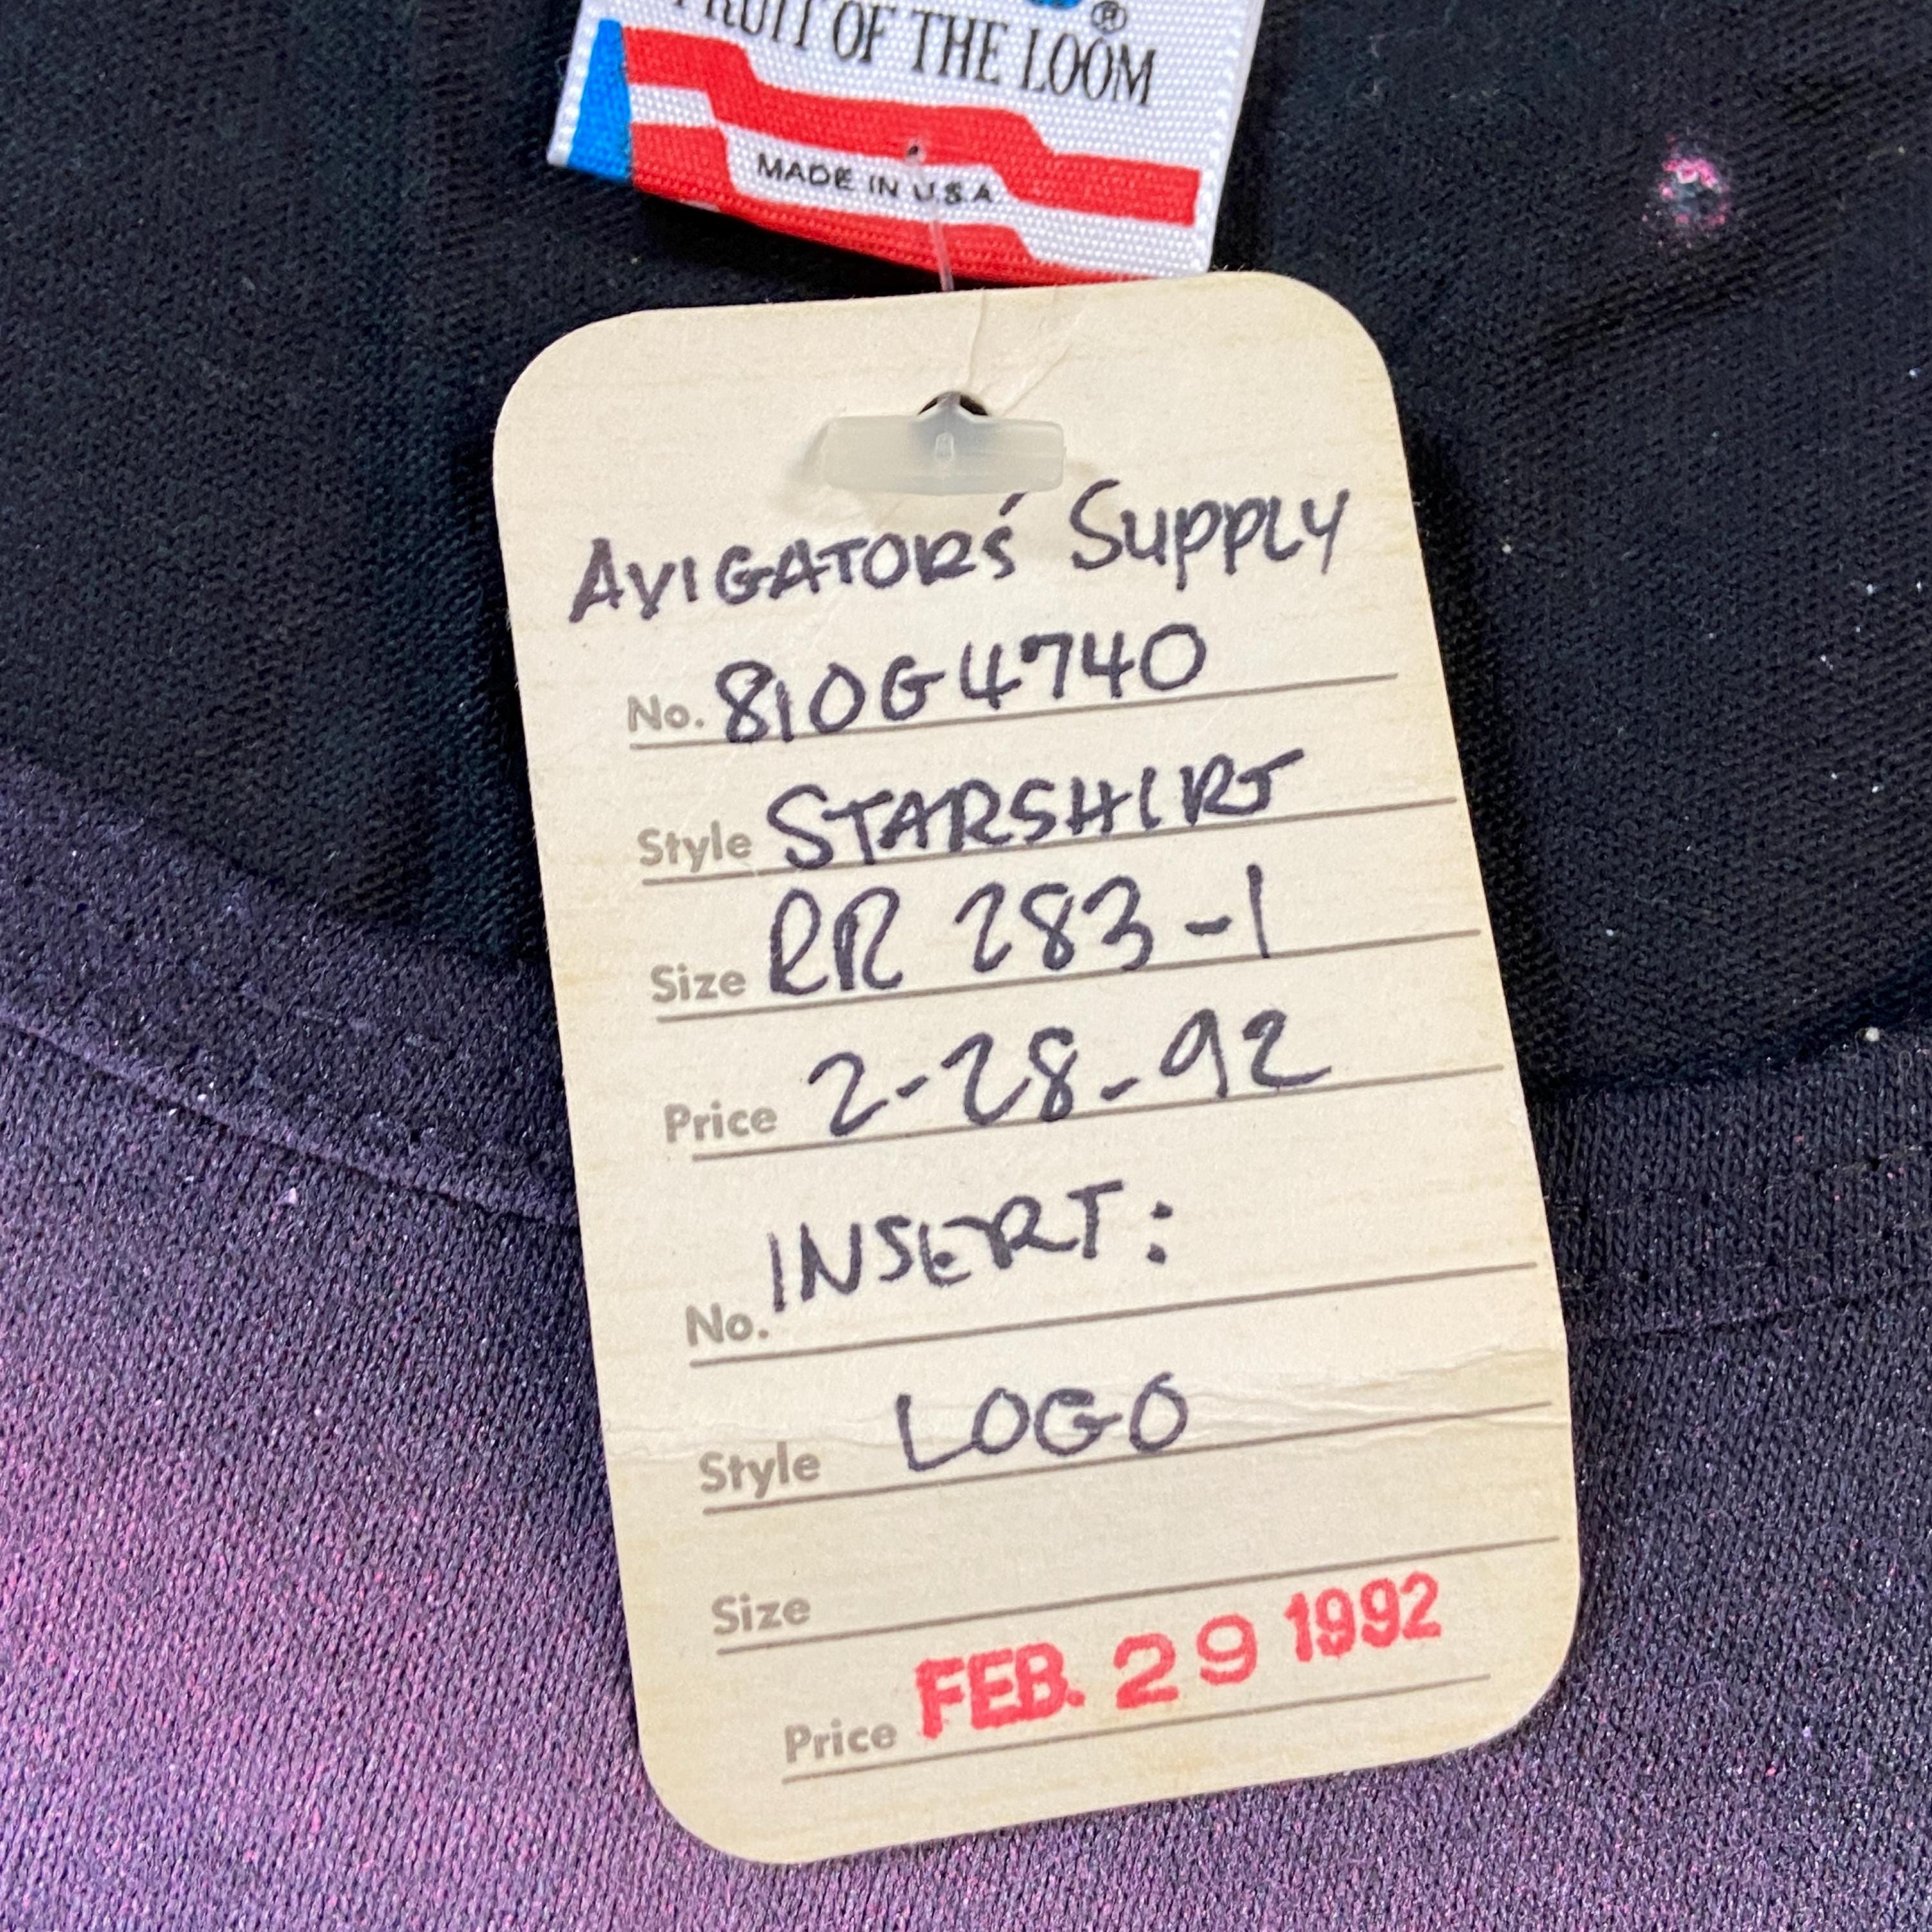 FRUIT OF THE LOOM ®
MADE IN U.S.A.
AVIGATORS' SUPPLY
No. 810G4740
Style STARSHIRT
Size RR 283-1
Price 2-28-92
No. INSERT:
Style LOGO
Size
Price FEB. 29 1992